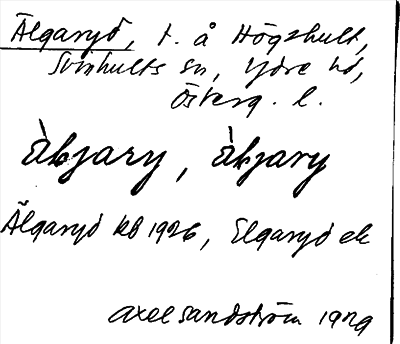 Älgaryd, t. å Högshult,
Svinhults sn, Ydre hd,
Österg. l.
àkjary, àkjary
Älgaryd kb 1926, Elgaryd ek
Axel Sandström 1929